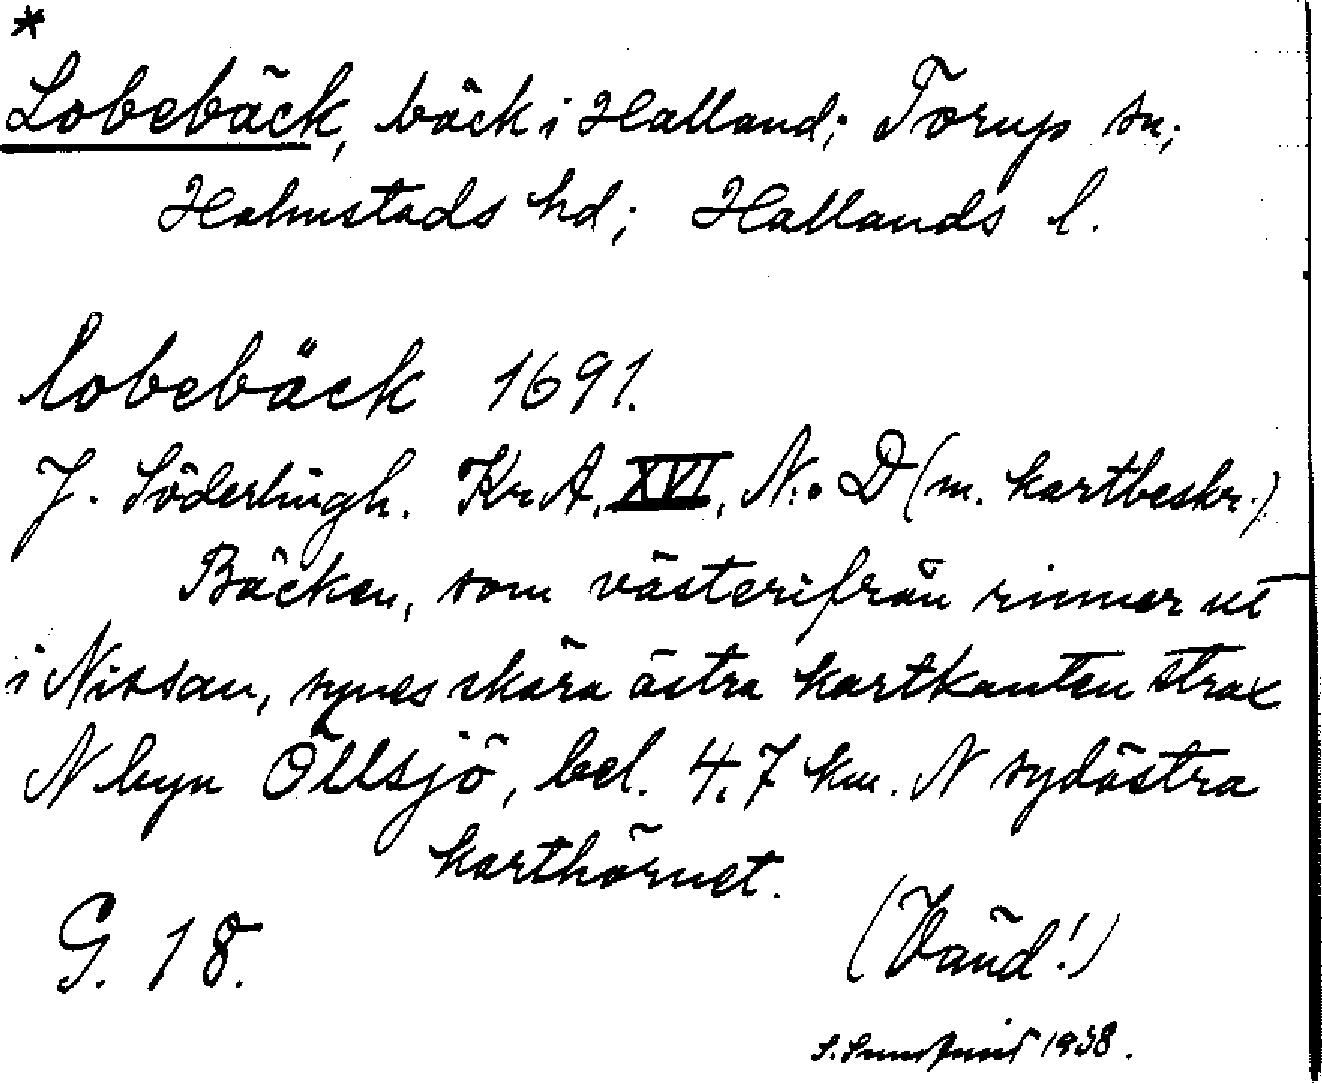 *
Lobebäck, bäck i Halland; Torup sn;
Halmstads hd; Hallands l.
lobebäck 1691.
J. Söderlingh. Kr. A. XVI, N:o D (m. kartbeskr.)
Bäcken, som västerifrån rinner ut
i Nissan, synes skära östra kartkanten strax
N byn Öllsjö, bel. 4,7 km. N sydöstra
karthörnet.
G. 18.
(Vänd!)
1938.